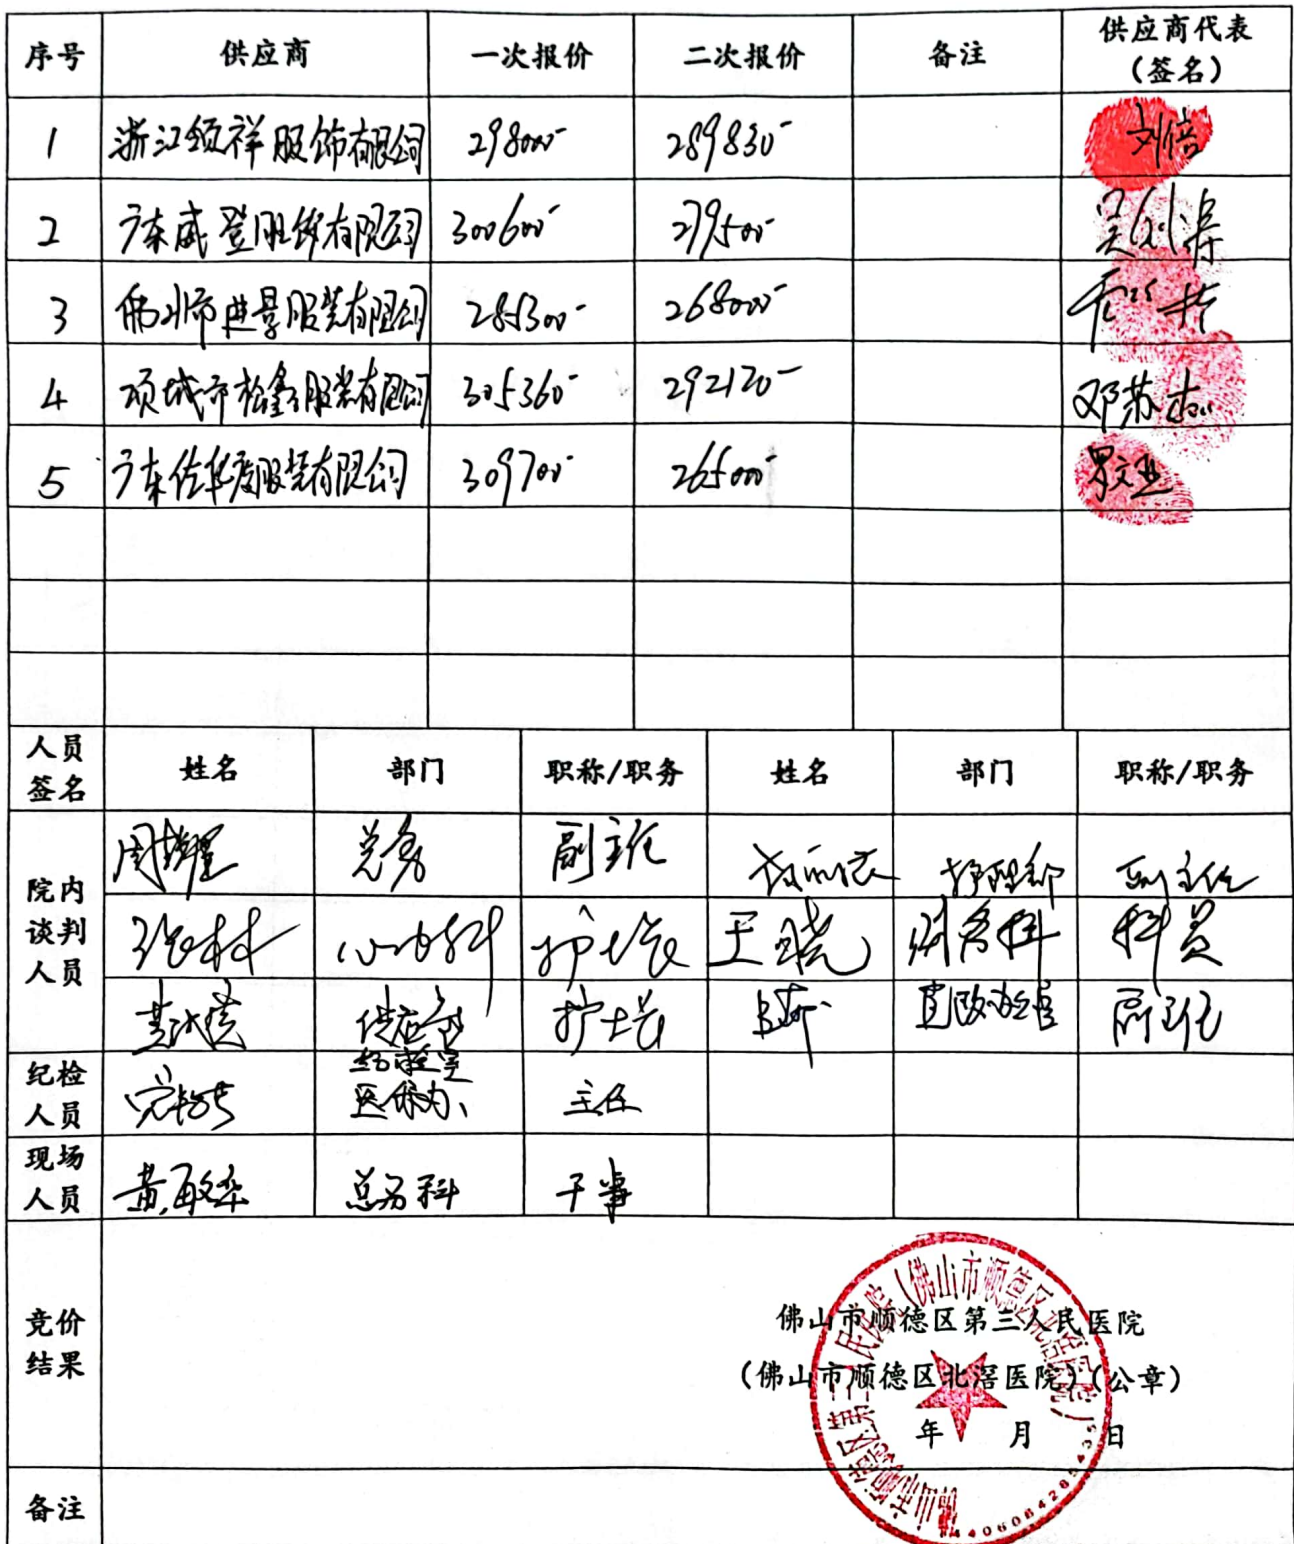 序号 供应商 一次报价 二次报价 备注 供应商代表
(签名)
1 浙江领祥服饰有限公司 298000- 289830- 刘倍
2 广东威登服饰有限公司 300600- 279500-
3 佛山市进景服装有限公司 285300- 268000-
4 项城市松鑫服装有限公司 305360- 292120- 邓苏杰
5 广东佐华度服装有限公司 309700- 265000- 罗文亚
人员
签名 姓名 部门 职称/职务 姓名 部门 职称/职务
总务 副主任 护理部 副主任
院内
谈判
人员 张林 心内科 护士长 王晓 财务科 科员
供应室 护士长 党政办公室 副主任
纪检
人员 纪检室
医保办 主任
现场
人员 黄敏华 总务科 干事
竞价
结果
佛山市顺德区第三人民医院
(佛山市顺德区北滘医院)(公章)
年 月 日
佛山市顺德区第三人民医院(佛山市顺德区北滘医院)
备注